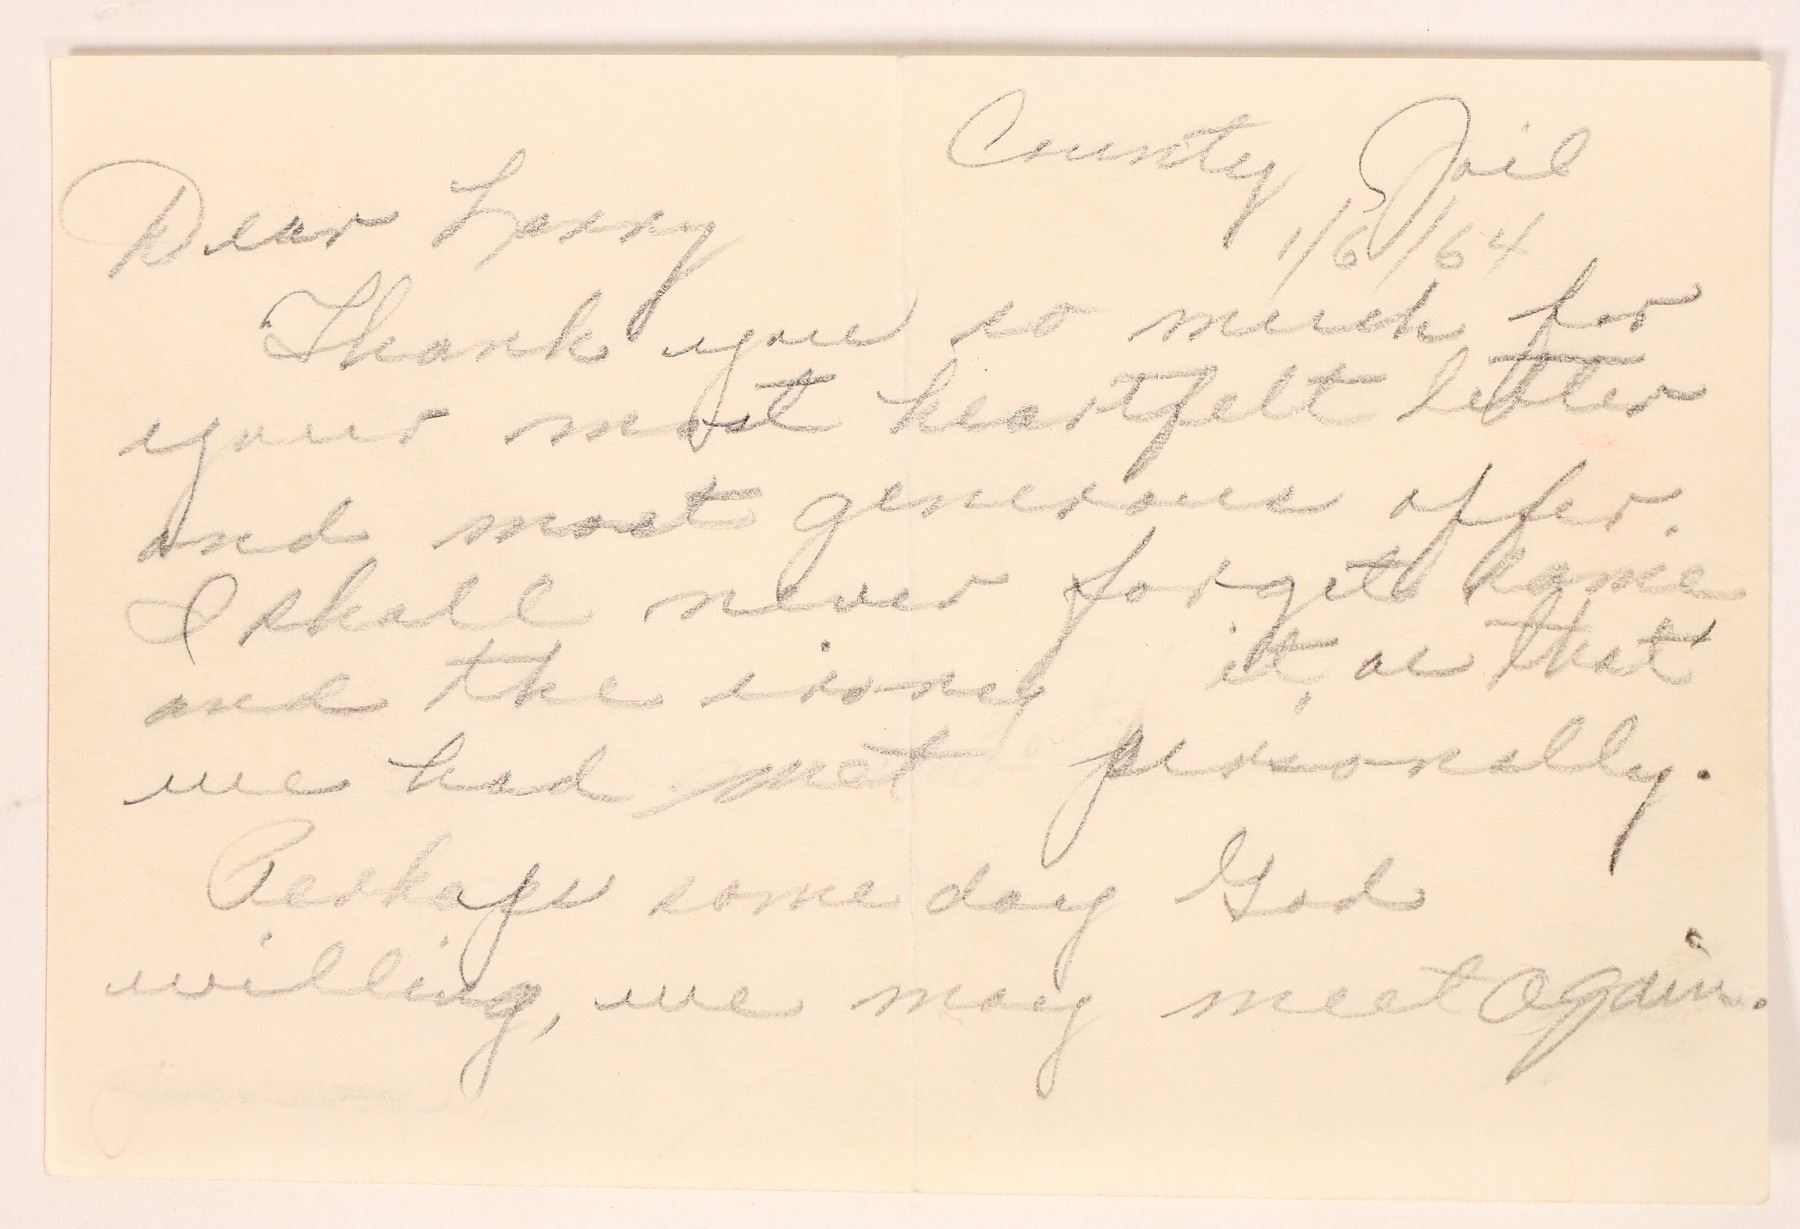 County Jail
1/6/64
Dear Lenny
Thank you so much for
your most heartfelt letter
and most generous offer.
I shall never forget same
and the irony it, as that
we had met personally.
Perhaps some day God
willing, we may meet again.